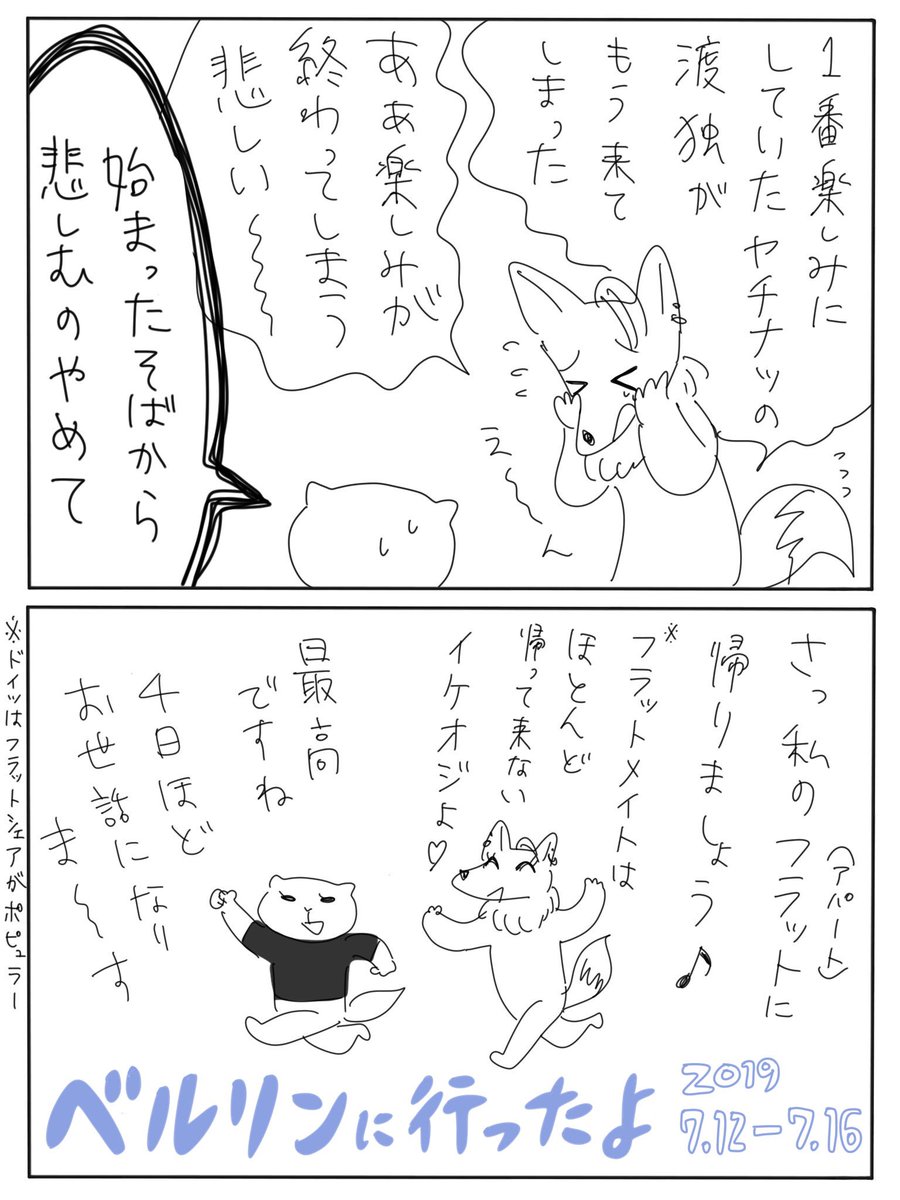 1番楽しみに
していたヤチナツの
渡独が
もう来て
しまった
ああ楽しみが
終わってしまう
悲しい〜〜
えーーん
始まったそばから
悲しむのやめて
さっ私のフラットに
(アパート)
帰りましょう♪
※フラットメイトは
ほとんど
帰って来ない
イケオジよ♡
最高
ですね
4日ほど
お世話になり
ま〜〜す
※ドイツはフラットシェアがポピュラー
ベルリンに行ったよ
2019
7.12−7.16